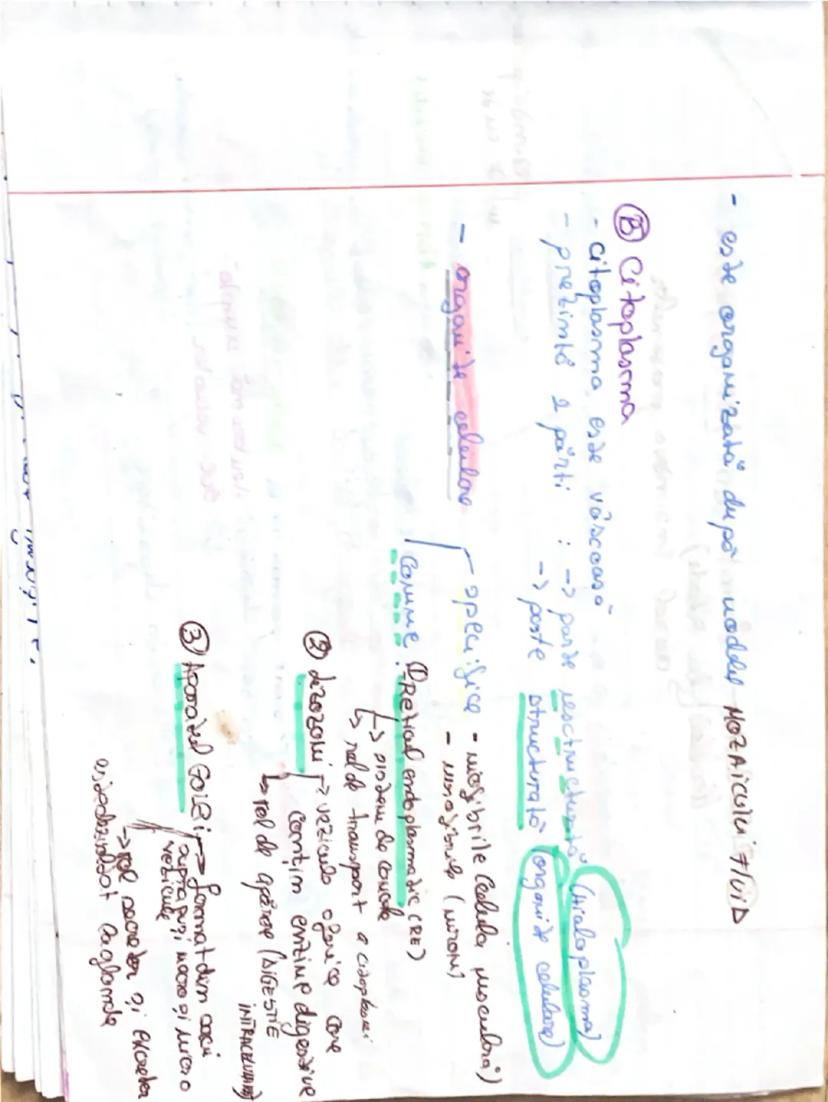 - este organizată după modelul MOZAICULUI FLUID
Ⓑ Citoplasma
- citoplasma este vâscoasă
- prezintă 2 părți : -> parte nestructurată (hialoplasma)
-> parte structurată (organite celulare)
- organite celulare
specifice - miofibrile (celula musculară)
- neurofibrile (neuron)
comune : ① Reticul endoplasmatic (RE)
-> sistem de canale
-> rol de transport a citoplasmei
② Lizozomi -> vezicule sferice care
conțin enzime digestive
-> rol de apărare (DIGESTIE
INTRACELULARĂ)
③ Aparatul GOLGI -> format din saci
suprapuși macro și micro
vezicule
-> rol secretor și excretor
este dezvoltat la glande